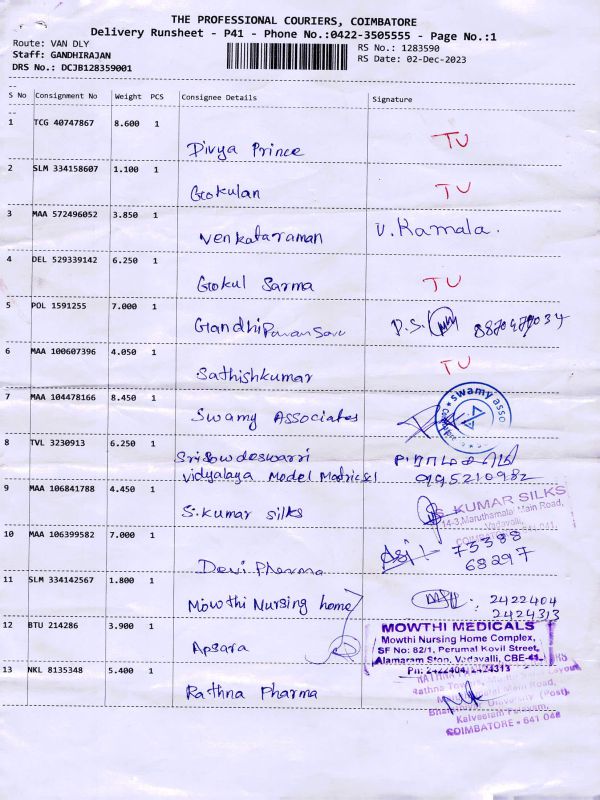 THE PROFESSIONAL COURIERS, COIMBATORE
Delivery Runsheet - P41 - Phone No.:0422-3505555 - Page No.:1
Route: VAN DLY
RS No.: 1283590
Staff: GANDHIRAJAN
RS Date: 02-Dec-2023
DRS No.: DCJB128359001
S No Consignment No Weight PCS Consignee Details Signature
1 TCG 40747867 8.600 1
Divya Prince TU
2 SLM 334158607 1.100 1
Gokulan TU
3 MAA 572496052 3.850 1
Venkataraman V. Kamala.
4 DEL 529339142 6.250 1
Gokul Sarma TU
5 POL 1591255 7.000 1
Gandhi P.S.
6 MAA 100607396 4.050 1
Sathishkumar TU
7 MAA 104478166 8.450 1
Swamy Associates
swamy asso
8 TVL 3230913 6.250 1
Sri Sowdeswarri
vidyalaya Model 995210982
9 MAA 106841788 4.450 1
S. Kumar silks
S. KUMAR SILKS
14-3, Maruthamalai Main Road,
Vadavalli,
10 MAA 106399582 7.000 1
73388
68297
Devi Pharma
11 SLM 334142567 1.800 1
Mowthi Nursing home 2422404
2424313
12 BTU 214286 3.900 1
Apsara
MOWTHI MEDICALS
Mowthi Nursing Home Complex,
SF No: 82/1, Perumal Kovil Street,
Alamaram Stop, Vadavalli, CBE-41.
Ph: 2422404, 2424313
13 NKL 8135348 5.400 1
Rathna Pharma
Main Road,
University (Post),
Kalveeram Palayam,
COIMBATORE - 641 046